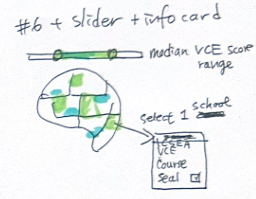 #6 + slider + info card
median VCE score
range
select 1 school
ICSEA
VCE
Course
Seal